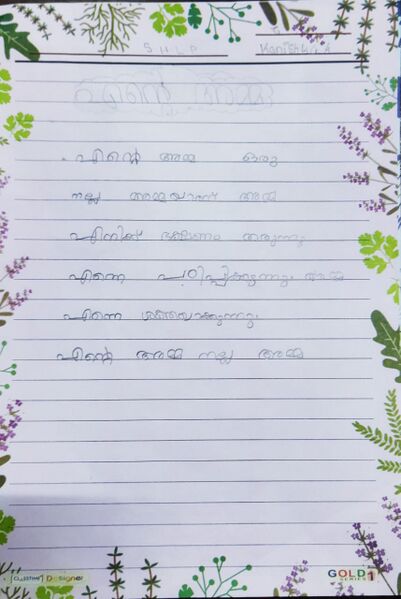 SHLP
Kanishka.A
എന്റെ അമ്മ
എന്റെ അമ്മ ഒരു
നല്ല അമ്മയാണ് അമ്മ
എനിക്ക് ഭക്ഷണം തരുന്നു
എന്നെ പഠിപ്പിക്കുന്നു. അമ്മ
എന്നെ
എന്റെ അമ്മ നല്ല അമ്മ
Designer
GOLD 1
SERIES